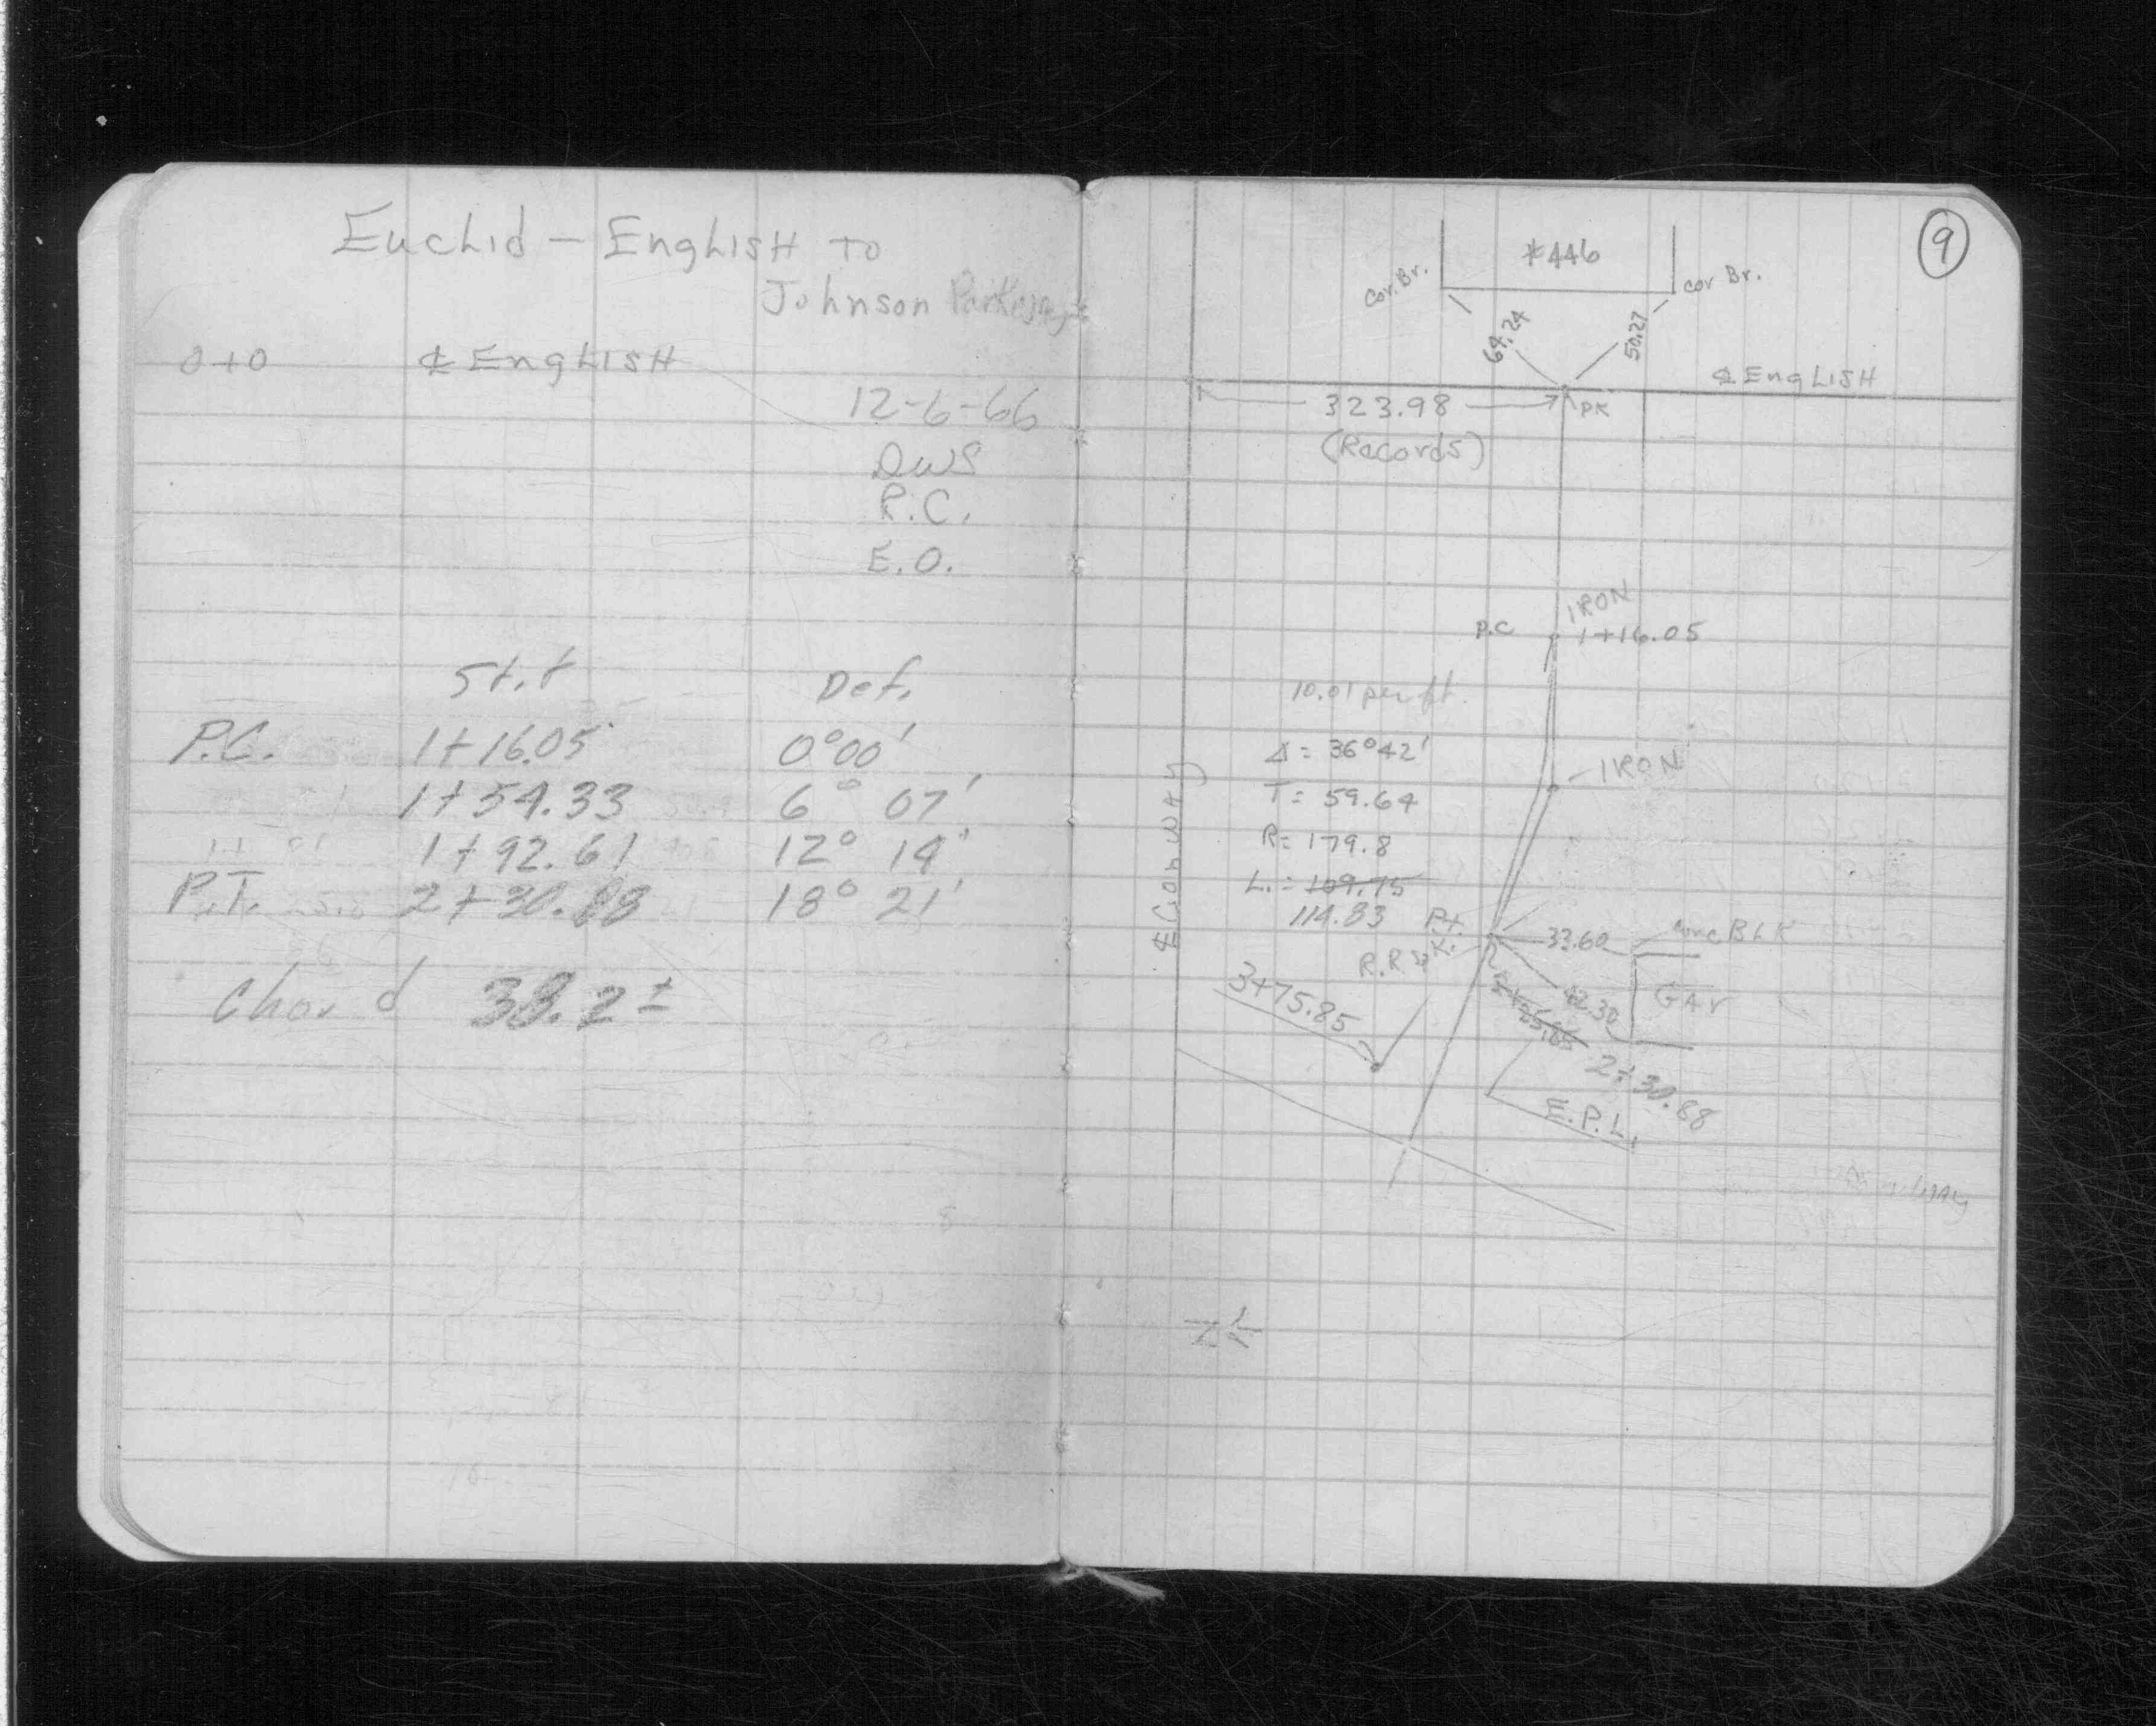 Euclid – English to
Johnson Parkway
0+0 ℄ English
12-6-66
DWS
R.C.
E.O.
St.t Def.
P.C. 1+16.05 0°00'
1+54.33 6° 07'
1+92.61 12° 14'
P.T. 2+30.88 18° 21'
Chord 38.2±
9
#446
Cor. Br.
cor Br.
64.24
50.27
℄ English
323.98
PK
(Records)
IRON
P.C 1+16.05
10.01 per ft.
Δ = 36°42'
IRON
T = 59.64
R = 179.8
L. = 109.75
114.83
℄ Conway
P.t.
33.60
Conc BLK
R.R spk.
3+75.85
42.30
GAr
2+30.88
E.P.L.
N